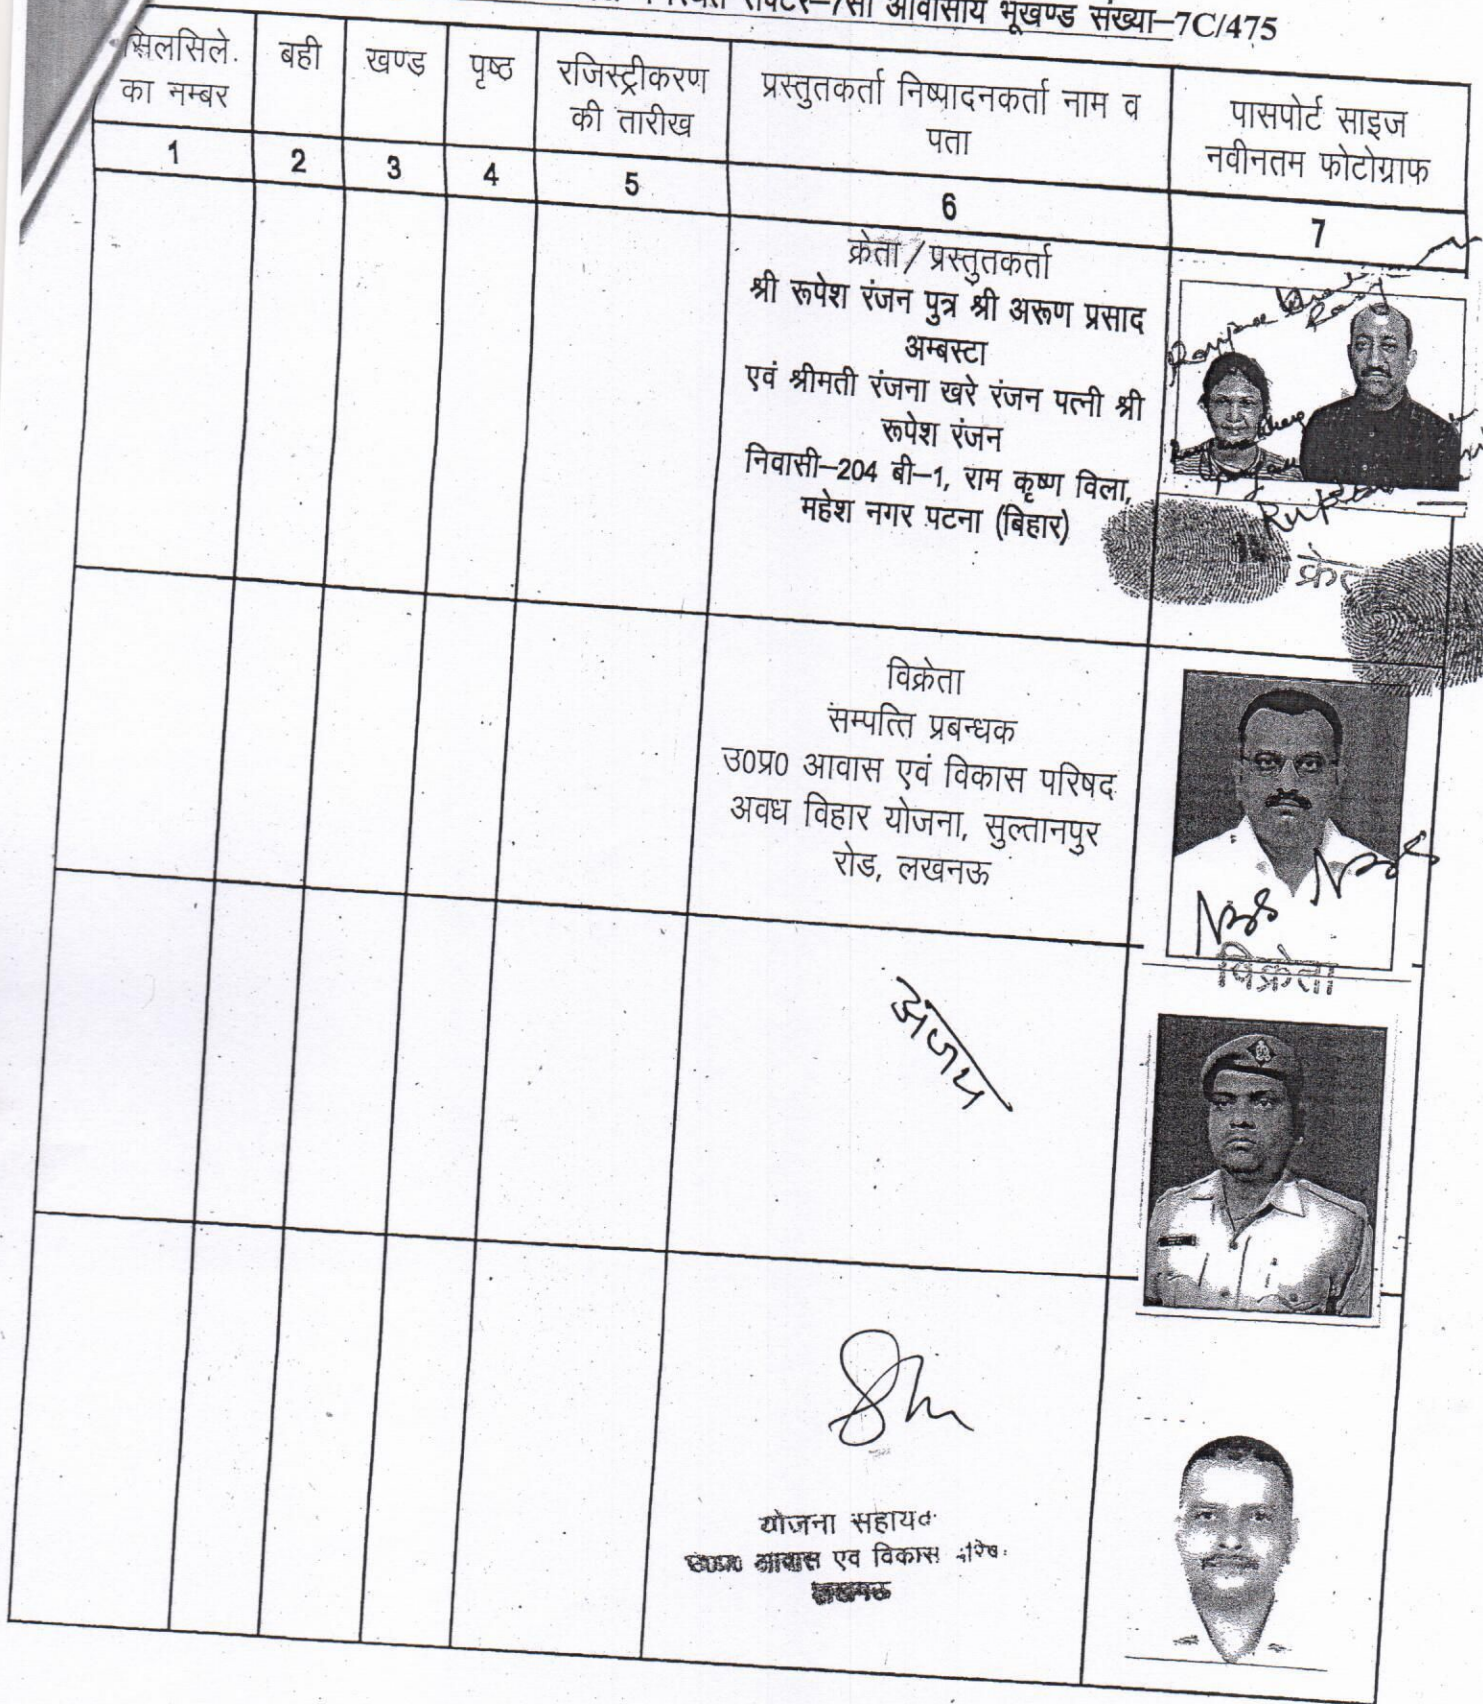 सेक्टर–7सी आवासीय भूखण्ड संख्या–7C/475
सिलसिले. का नम्बर
बही
खण्ड
पृष्ठ
रजिस्ट्रीकरण
की तारीख
प्रस्तुतकर्ता निष्पादनकर्ता नाम व
पता
पासपोर्ट साइज
नवीनतम फोटोग्राफ
1
2
3
4
5
6
7
क्रेता/प्रस्तुतकर्ता
श्री रूपेश रंजन पुत्र श्री अरूण प्रसाद
अम्बस्टा
एवं श्रीमती रंजना खरे रंजन पत्नी श्री
रूपेश रंजन
निवासी–204 बी–1, राम कृष्ण विला,
महेश नगर पटना (बिहार)
विक्रेता
सम्पत्ति प्रबन्धक
उ0प्र0 आवास एवं विकास परिषद
अवध विहार योजना, सुल्तानपुर
रोड, लखनऊ
विक्रेता
अजय
योजना सहायक
उ0प्र0 आवास एव विकास